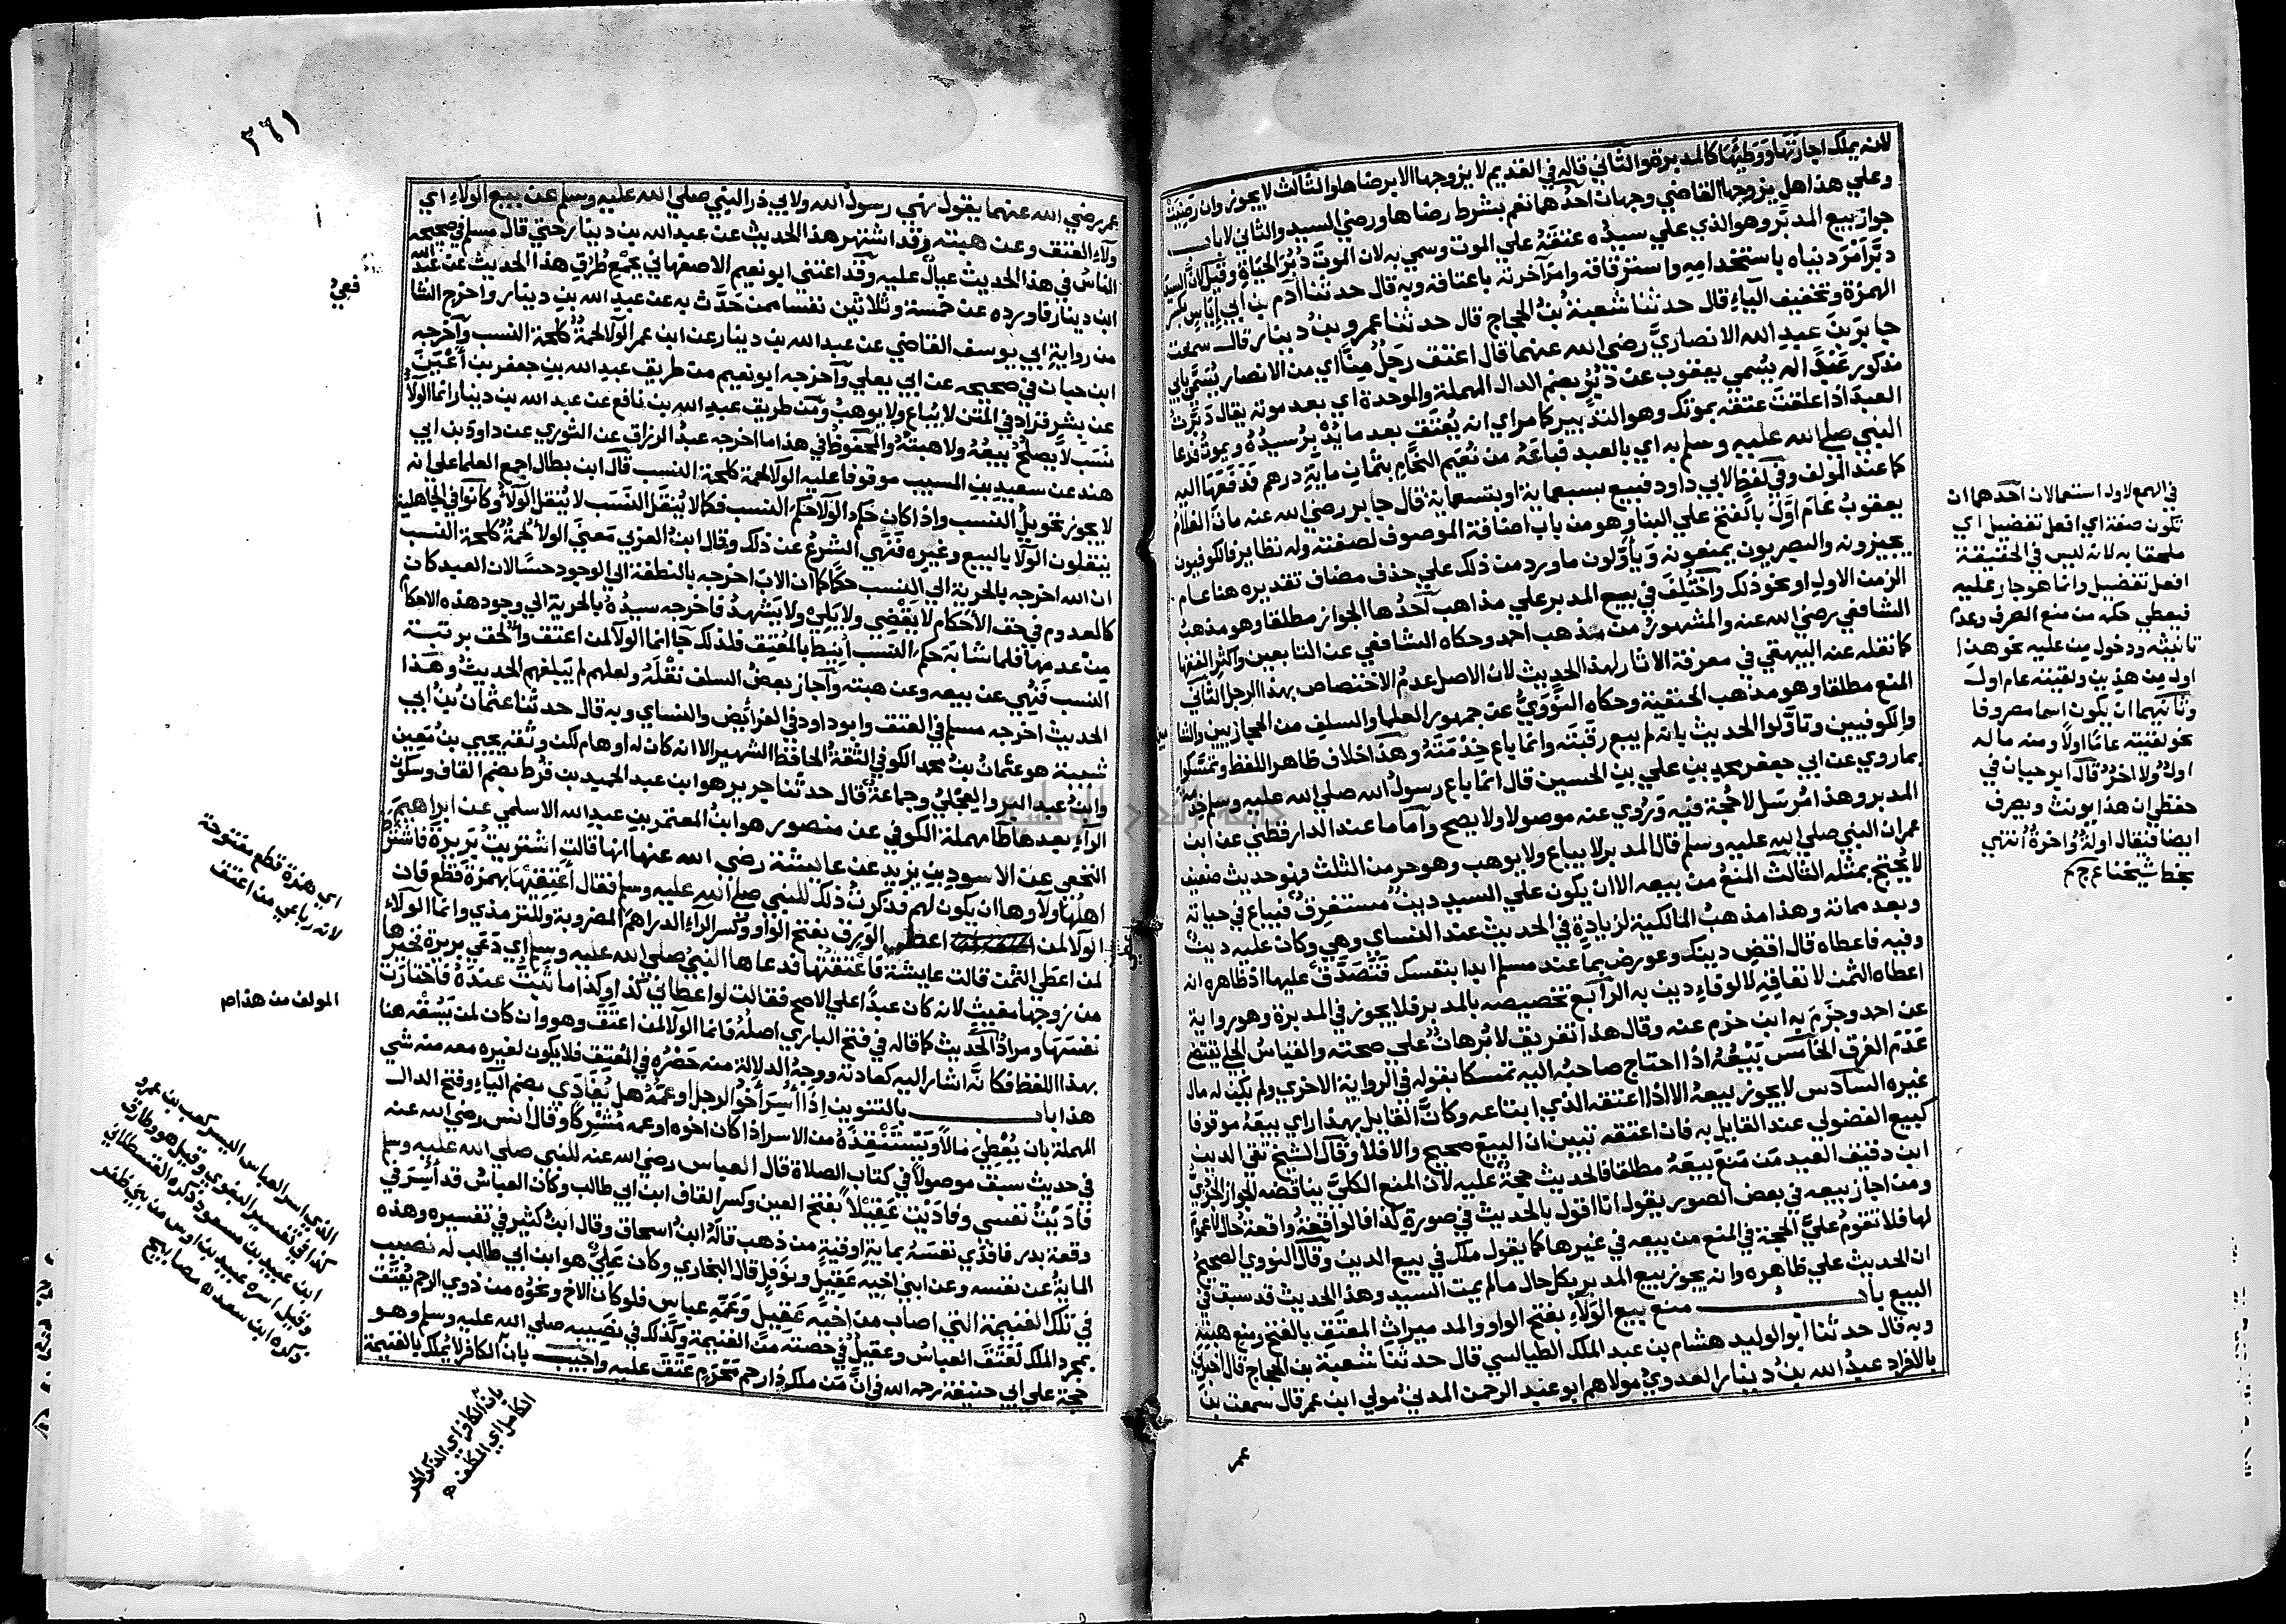 لانه يملك اجارتها ووطيها كالمدبرة والثاني قاله في القديم لا يزوجها الا برضاها والثالث لا يجوز وان رضيت
وعلي هذا هل يزوجها القاضي وجهان احدهما نعم بشرط رضاها ورضي السيد والثاني لا باب
جواز بيع المدبر وهو الذي علي سيده عتقه علي الموت وسمي به لان الموت دبر الحياة وقيل لان السيد
دبر امر دنياه باستخدامه واسترقاقه وامر آخرته باعتاقه وبه قال حدثنا آدم بن ابي اياس بكسر
الهمزة وتخفيف الياء قال حدثنا شعبة بن الحجاج قال حدثنا عمرو بن دينار قال سمعت
جابر بن عبد الله الانصاري رضي الله عنهما قال اعتق رجل منا اي من الانصار يسمي بابي
مذكور عبدا له يسمي يعقوب عن دبر بضم الدال المهملة والموحدة اي بعد موته يقال دبرت
العبد اذا علقت عتقه بموتك وهو التدبير كما مر اي انه يعتق بعد ما يدبر سيده ويموت فدعا
النبي صلي الله عليه وسلم به اي بالعبد فباعه من نعيم النحام بثمان ماية درهم فدفعها اليه
كما عند المولف وفي لفظ لابي داود فبيع بسبعماية او بتسعماية قال جابر رضي الله عنه مات الغلام
يعقوب عام اول بالفتح علي البنا وهو من باب اضافة الموصوف لصفته وله نظاير فالكوفيون
يجيزونه والبصريون يمنعونه ويأولون ما ورد من ذلك علي حذف مضاف تقديره هنا عام
الزمن الاول او نحو ذلك واختلف في بيع المدبر علي مذاهب احدها الجواز مطلقا وهو مذهب
الشافعي رضي الله عنه والمشهور من مذهب احمد وحكاه الشافعي عن التابعين واكثر الفقها
كما نقله عنه البيهقي في معرفة الاثار لهذا الحديث لان الاصل عدم الاختصاص بهذا الرجل الثاني
المنع مطلقا وهو مذهب الحنفية وحكاه النووي عن جمهور العلما والسلف من الحجازيين والشا
والكوفيين وتاولوا الحديث بانه لم يبع رقبته وانما باع خدمته وهذا خلاف ظاهر اللفظ وتمسكوا
بما روي عن ابي جعفر محمد بن علي بن الحسين قال انما باع رسول الله صلي الله عليه وسلم خدمة
المدبر وهذا مرسل لا حجة فيه وروي عنه موصولا ولا يصح واما ما عند الدارقطني عن ابن
عمر ان النبي صلي الله عليه وسلم قال المدبر لا يباع ولا يوهب وهو حر من الثلث فهو حديث ضعيف
لا يحتج بمثله الثالث المنع من بيعه الا ان يكون علي السيد دين مستغرق فيباع في حياته
وبعد مماته وهذا مذهب المالكية لزيادة في الحديث عند النساي وهي وكان عليه دين
وفيه فاعطاه قال اقض دينك وعورض بما عند مسلم ابدا بنفسك فتصدق عليها اذ ظاهره انه
اعطاه الثمن لانفاقه لا لوفاء دين به الرابع تخصيصه بالمدبر فلا يجوز في المدبرة وهو رواية
عن احمد وجزم به ابن حزم عنه وقال هذا تفريق لا برهان علي صحته والقياس الجلي يقتضي
عدم الفرق الخامس بيعه اذا احتاج صاحبه اليه تمسكا بقوله في الرواية الاخري ولم يكن له مال
غيره السادس لا يجوز بيعه الا اذا اعتقه الذي ابتاعه وكان القايل بهذا راي بيعه موقوفا
كبيع الفضولي عند القايل به فان اعتقه تبين ان البيع صحيح والا فلا وقال الشيخ تقي الدين
ابن دقيق العيد من منع بيعه مطلقا فالحديث حجة عليه لان المنع الكلي يناقضه الجواز الجزئي
ومن اجاز بيعه في بعض الصور يقول انا اقول بالحديث في صورة كذا فالواقعة واقعة حال لا عموم
لها فلا تقوم علي الحجة في المنع من بيعه في غيرها كما يقول ملك في بيع الدين وقال النووي الصحيح
ان الحديث علي ظاهره وانه يجوز بيع المدبر بكل حال ما لم يمت السيد وهذا الحديث قد سبق في
البيع باب منع بيع الولاء بفتح الواو والمد ميراث المعتق بالفتح ومنع هبته
وبه قال حدثنا ابو الوليد هشام بن عبد الملك الطيالسي قال حدثنا شعبة بن الحجاج قال اخبرني
بالافراد عبد الله بن دينار العدوي مولاهم ابو عبد الرحمن المدني مولي ابن عمر قال سمعت بن
عمر
في الهمع لاول استعمالان احدهما ان
تكون صفة اي افعل تفضيل اي
ملحقا به لانه ليس في الحقيقة
افعل تفضيل وانما هو جار عليه
فيعطي حكمه من منع الصرف وعدم
تانيثه ودخول من عليه نحو هذا
اول من هذين ولقيته عام اول
وثانيهما ان يكون اسما مصروفا
نحو لقيته عاما اولا ومنه ما له
اول ولا اخر قال ابو حيان في
حفظي ان هذا يونث ويصرف
ايضا فيقال اولة واخرة انتهي
بخط شيخنا ع ج م
٣٦١
عمر رضي الله عنهما يقول نهي رسول الله ولابي ذر النبي صلي الله عليه وسلم عن بيع الولاء اي
ولاء العتق وعن هبته وقد اشتهر هذا الحديث عن عبد الله بن دينار حتي قال مسلم في صحيحه
الناس في هذا الحديث عيال عليه وقد اعتني ابو نعيم الاصفهاني بجمع طرق هذا الحديث عن عبد الله
ابن دينار فاورده عن خمسة وثلاثين نفسا ممن حدث به عن عبد الله بن دينار واخرج الشا
فعي
من رواية ابي يوسف القاضي عن عبد الله بن دينار عن ابن عمر الولا لحمة كلحمة النسب واخرجه
ابن حبان في صحيحه عن ابي يعلي واخرجه ابو نعيم من طريق عبد الله بن جعفر بن اعين
عن بشر فزاد في المتن لا يباع ولا يوهب ومن طريق عبد الله بن نافع عن عبد الله بن دينار انما الولا
نسب لا يصلح بيعه ولا هبته والمحفوظ في هذا ما اخرجه عبد الرزاق عن الثوري عن داود بن ابي
هند عن سعيد بن المسيب موقوفا عليه الولا لحمة كلحمة النسب قال ابن بطال اجمع العلما علي انه
لا يجوز تحويل النسب واذا كان حكم الولا حكم النسب فكما لا ينتقل النسب لا ينتقل الولاء وكانوا في الجاهلية
ينقلون الولا بالبيع وغيره فنهي الشرع عن ذلك وقال ابن العربي معني الولا لحمة كلحمة النسب
ان الله اخرجه بالحرية الي النسب حكما كما ان الاب اخرجه بالنطفة الي الوجود حسا لان العبد كان
كالمعدوم في حق الاحكام لا يقضي ولا يلي ولا يشهد فاخرجه سيده بالحرية الي وجود هذه الاحكام
من عدمها فلما شابه حكم النسب انيط بالمعتق فلذلك جا انما الولا لمن اعتق والحق برتبة
النسب فنهي عن بيعه وعن هبته واجاز بعض السلف نقله ولعلهم لم يبلغهم الحديث وهذا
الحديث اخرجه مسلم في العتق وابو داود في الفرائض والنساي وبه قال حدثنا عثمان بن ابي
شيبة هو عثمان بن محمد الكوفي الثقة الحافظ الشهير الا انه كان له اوهام لكن وثقه يحيي بن معين
وابن عبد البر والعجلي وجماعة قال حدثنا جرير هو ابن عبد الحميد بن قرط بضم القاف وسكون
الراء بعدها طا مهملة الكوفي عن منصور هو ابن المعتمر بن عبد الله الاسلمي عن ابراهيم
النخعي عن الاسود بن يزيد عن عايشة رضي الله عنها انها قالت اشتريت بريرة فاشترط
اهلها ولاءها ان يكون لهم فذكرت ذلك للنبي صلي الله عليه وسلم فقال اعتقيها بهمزة قطع فان
الولا لمن اعطي الورق بفتح الواو وكسر الراء الدراهم المضروبة وللترمذي وانما الولاء
لمن اعطي الثمن قالت عايشة فاعتقتها فدعاها النبي صلي الله عليه وسلم اي دعي بريرة فخيرها
من زوجها مغيث لانه كان عبدا علي الاصح فقالت لو اعطاني كذا وكذا ما ثبت عنده فاختارت
نفسها ومراد الحديث كما قاله في فتح الباري اصله فانما الولا لمن اعتق وهو وان كان لمن يسقه هنا
بهذا اللفظ فكانه اشار اليه كعادته ووجه الدلالة منه حصره في المعتق فلا يكون لغيره معه منه شي
هذا باب بالتنوين اذا اسر اخو الرجل او عمه هل يفادي بضم الياء وفتح الدال
المهملة بان يعطي مالا ويستنقذه من الاسر اذا كان اخوه او عمه مشركا وقال انس رضي الله عنه
في حديث سبق موصولا في كتاب الصلاة قال العباس رضي الله عنه للنبي صلي الله عليه وسلم
فاديت نفسي وفاديت عقيلا بفتح العين وكسر القاف ابن ابي طالب وكان العباس قد اسر في
وقعة بدر فافدي نفسه بماية اوقية من ذهب قاله ابن اسحاق وقال ابن كثير في تفسيره وهذه
الماية عن نفسه وعن ابني اخيه عقيل ونوفل قال البخاري وكان علي هو ابن ابي طالب له نصيب
في تلك الغنيمة التي اصاب من اخيه عقيل وعمه عباس فلو كان الاخ ونحوه من ذوي الرحم يعتق
بمجرد الملك لعتق العباس وعقيل في حصته من الغنيمة وكذلك في نصيبه صلي الله عليه وسلم وهو
حجة علي ابي حنيفة رحمه الله في ان من ملك ذا رحم محرم عتق عليه واجيب بان الكافر لا يملك بالغنيمة
اي همزة قطع مفتوحة
لانه رباعي من اعتق
المولف من هذا م
الذي اسر العباس اليسر كعب بن عمرو
كذا في تفسير البغوي وقيل هو وطارق
ابن عبيد بن مسعود ذكره القسطلاني
وقيل اسره عبيد بن اوس من بني ظفر
ذكره ابن سعد مصابيح
بان الكافر اي الذكر الحر
الكامل اي المكلف